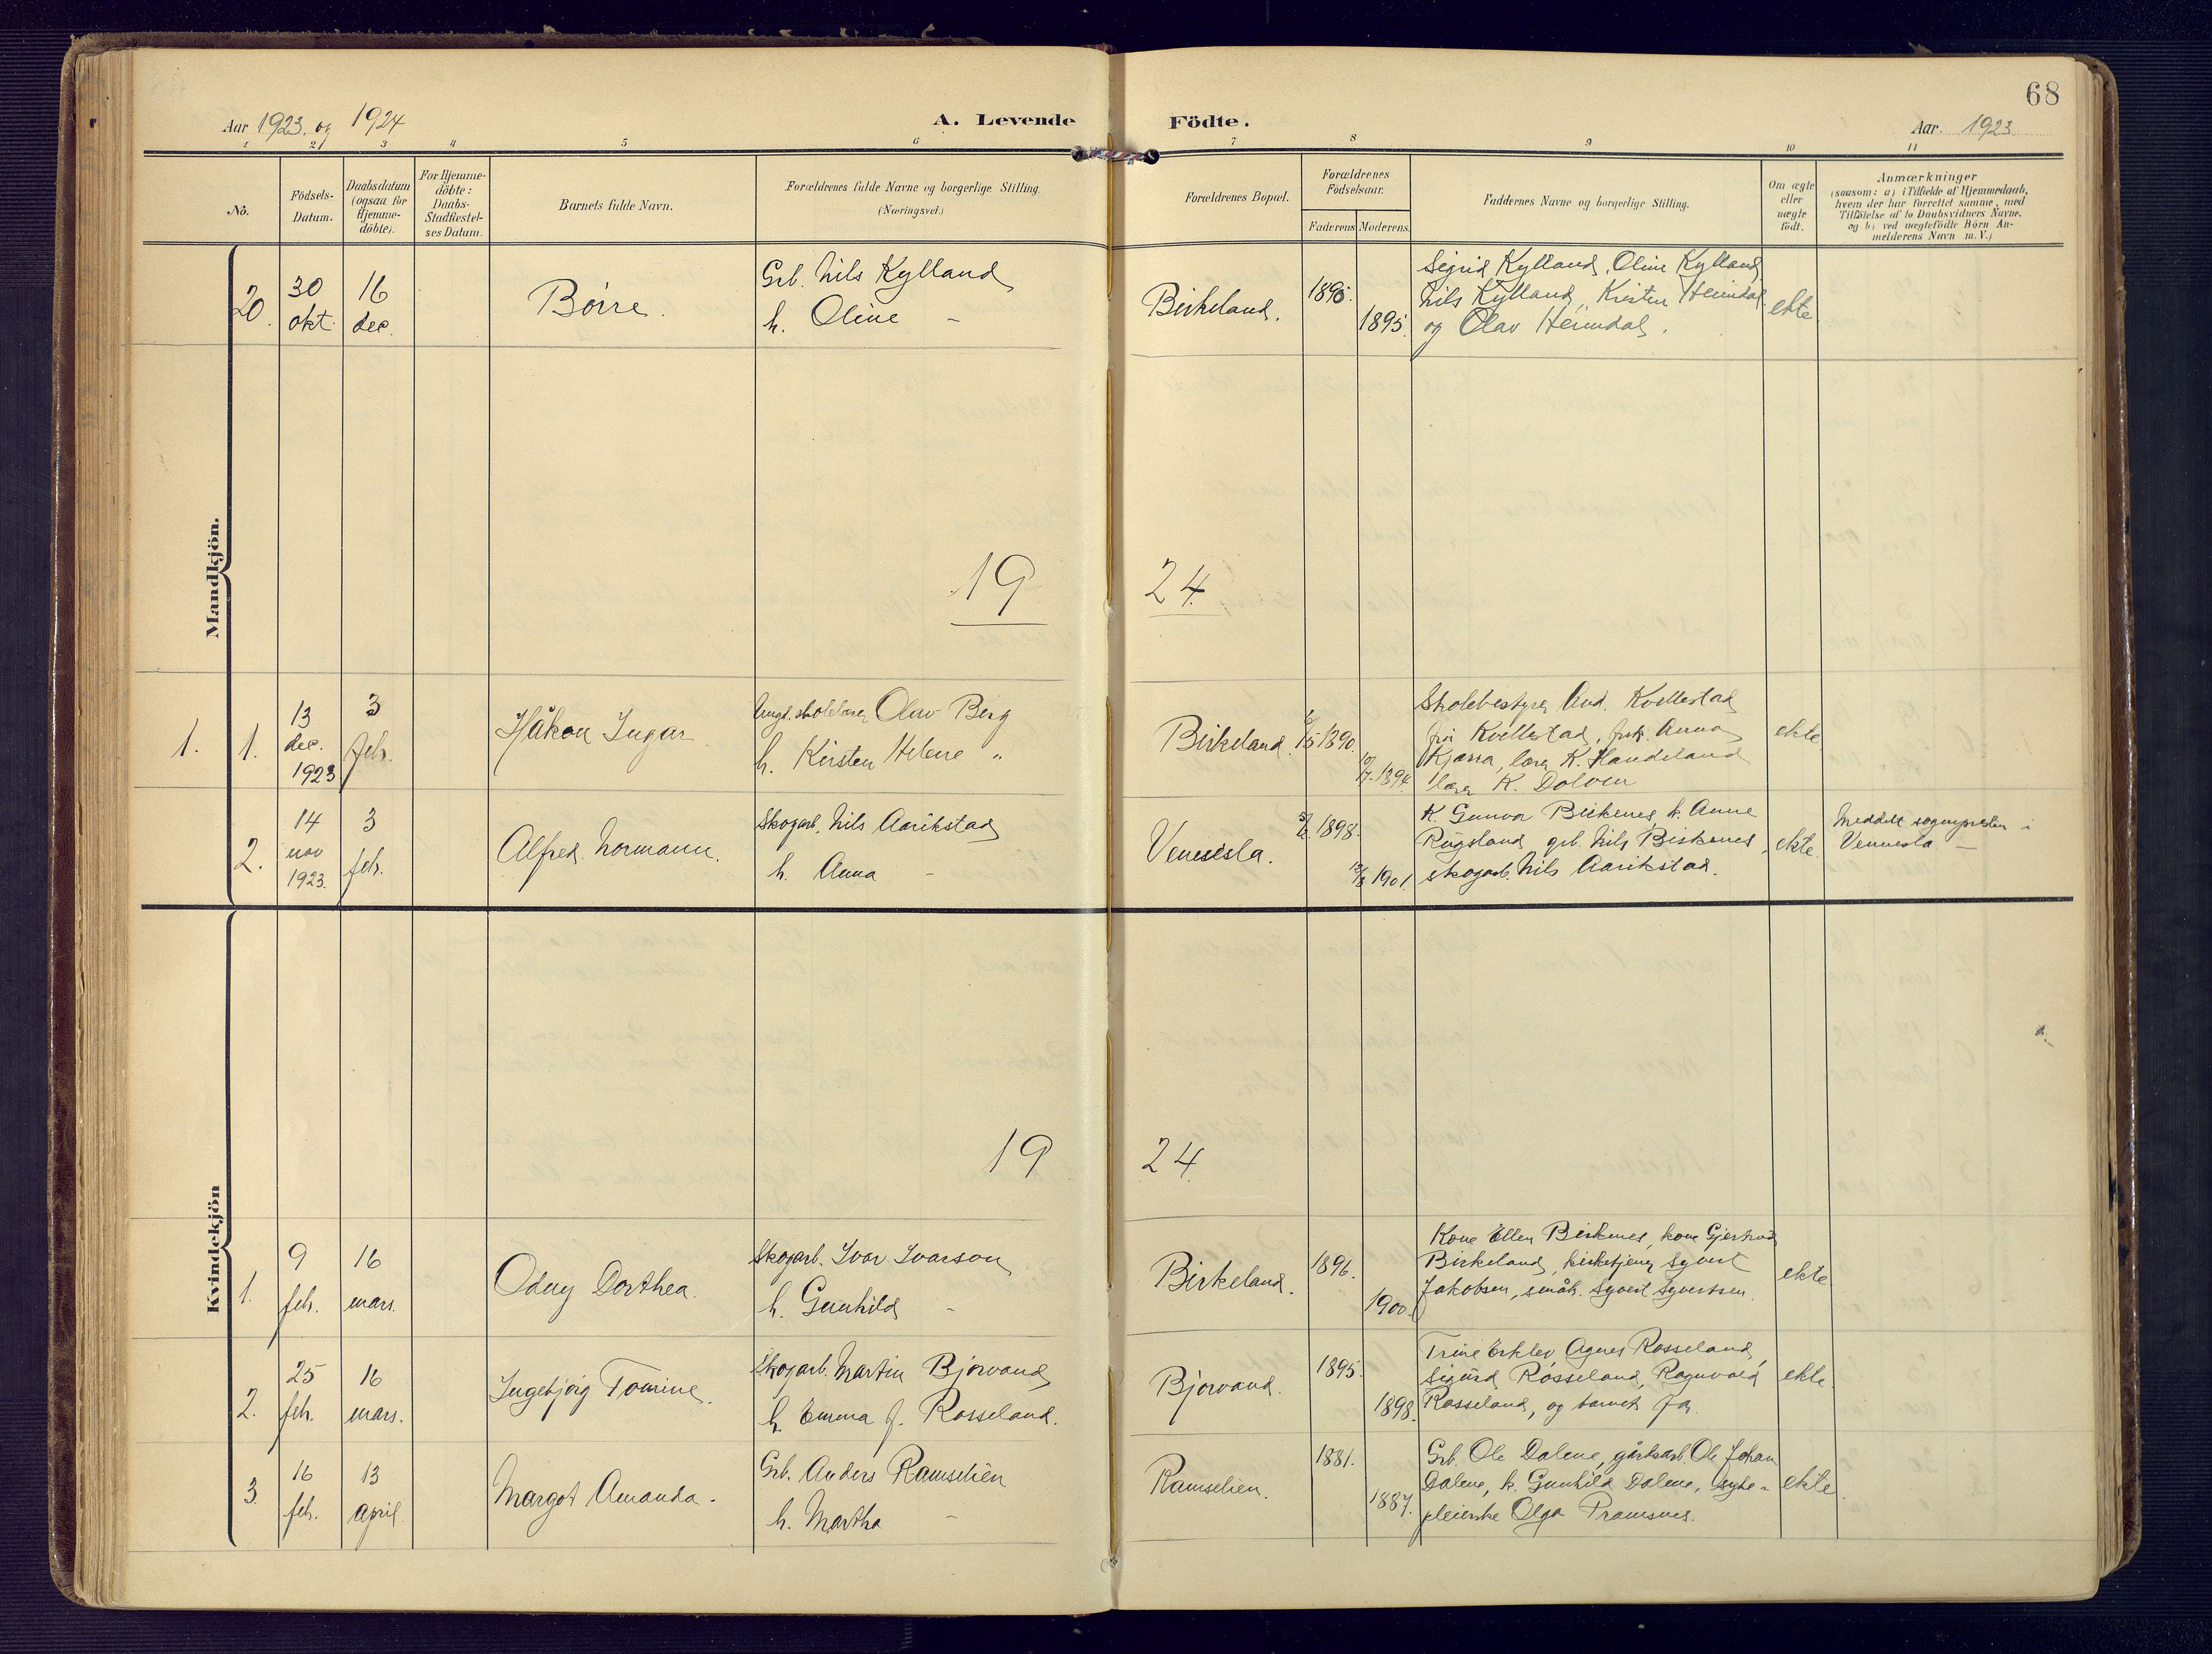 68
Aar 1923. og 1924
A. Levende Födte.
Aar. 1923.
1 2 3 4 5 6 7 8 9 10 11
No.
Födsels-
Datum.
Daabsdatum
(ogsaa for
Hjemme-
döbte).
For Hjemme-
döbte:
Daabs-
Stadfæstel-
ses Datum.
Barnets fulde Navn.
Forældrenes fulde Navne og borgerlige Stilling.
(Næringsvei.)
Forældrenes Bopæl.
Forældrenes
Födselsaar.
Faderens Moderens
Faddernes Navne og borgerlige Stilling.
Om ægte
eller
uægte
født.
Anmærkninger
(saasom: a) i Tilfælde af Hjemmedaab,
hvem der har forrettet samme, med
Tilföielse af to Daabsvidners Navne.
og b) ved uægtefödte Börn An-
melderens Navn m. V.)
Mandkjön.
20.
30
okt.
16
dec.
Börre.
Grb. Nils Kylland
h. Oline –
Birkeland.
1895.
Sigrid Kylland, Oline Kylland
Nils Kylland, Kristen Heimdal
og Olav Heimdal.
ekte
19 24
1. 1.
13
dec.
1923
3
feb.
Håkon Ingar.
Ungd. skolelærer Olav Berg
h. Kirsten Helene "
Birkeland.
1890.
1894.
Skolebestyrer And. Kvellestad
fru Kvellestad, frk. Anna
Kjærra, lærer K. Handeland
lærer K. Dolven
ekte
2.
14
nov
1923.
3
feb.
Alfred Normann.
Skogarb. Nils Aarikstad
h. Anna –
Vennesla.
1898.
1901.
K. Gunvor Birkenes, k. Anne
Rugsland, grb. Nils Birkenes
skogarb. Nils Aarikstad.
ekte.
Meddelt sognepresten i
Vennesla –
Kvindekjön
19 24
1.
9
feb.
16
mars.
Odny Dorthea.
Skogarb. Ivar Ivarson
h. Gunhild –
Birkeland.
1896.
1900.
Kone Ellen Birkenes, kone Gjertrud
Birkeland, kirketjener Syvert
Jakobsen, småbr. Syvert Syvertsen.
ekte
2.
25
feb.
16
mars.
Ingebjörg Tomine.
Skogarb. Martin Bjorvand
h. Emma f. Rosseland.
Bjorvand.
1895.
1898.
Trine Erklev, Agnes Rosseland,
Sigurd Rosseland, Ragnvald
Rosseland, og barnets far.
ekte.
3.
16
feb.
13
april.
Margot Amanda.
Grb. Anders Ramselien
h. Martha –
Ramselien.
1881.
1887.
Grb. Ole Dalene, gårdsarb. Ole Johan
Dalene, k. Gunhild Dalene, syke-
pleierske Olga Tramsnes.
ekte